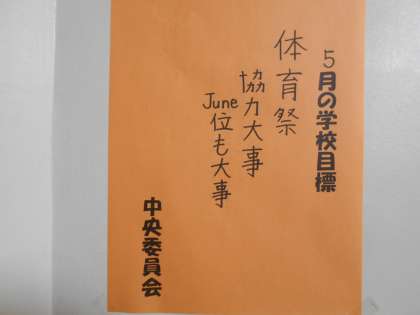 5月の学校目標
体育祭
協力大事
June位も大事
中央委員会